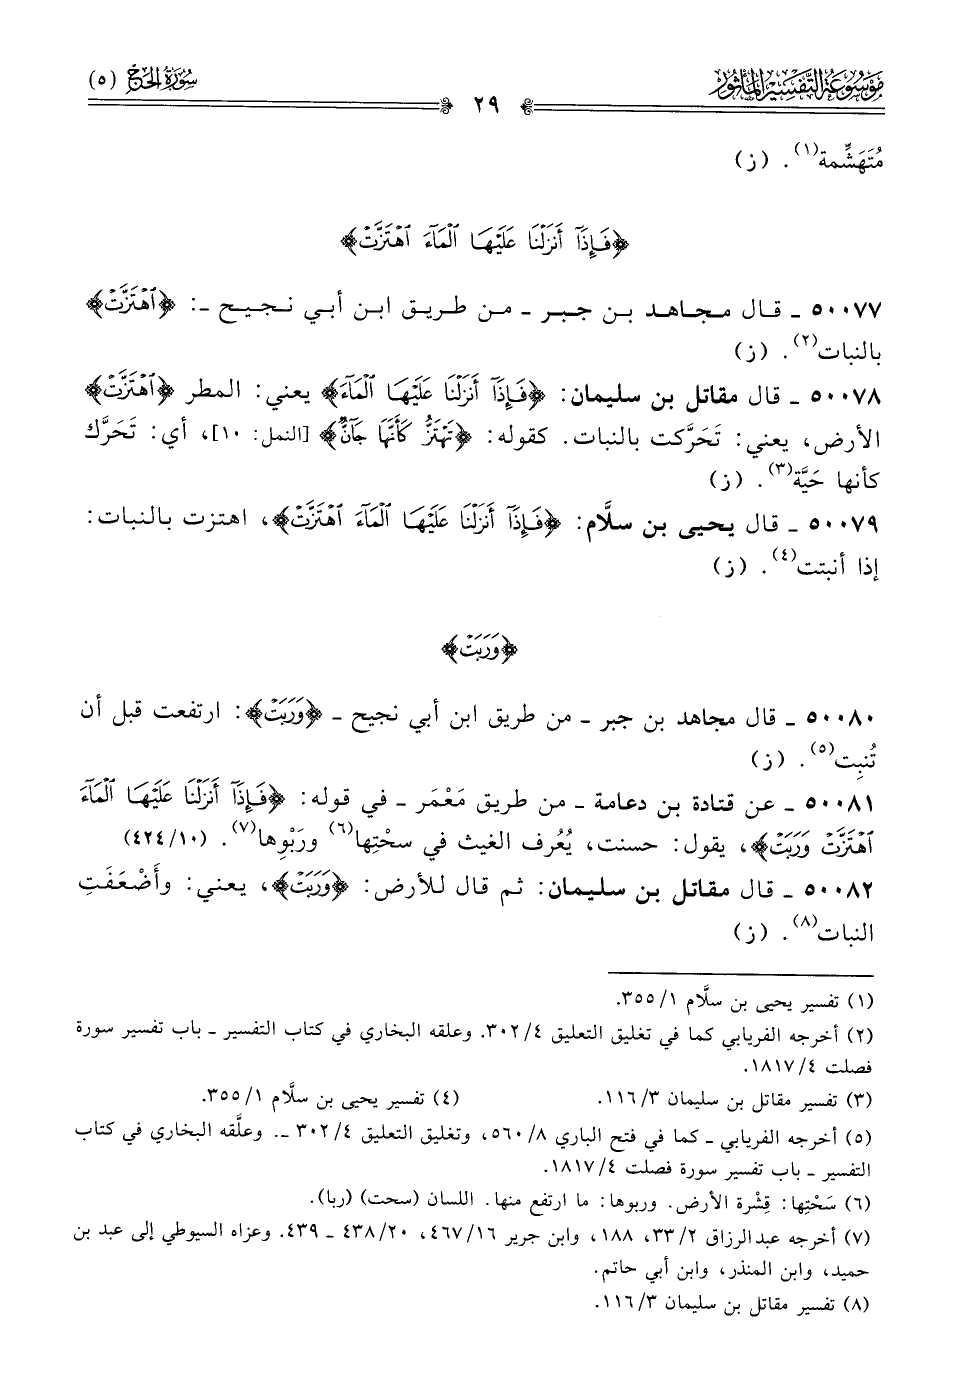 موسوعة التفسير المأثور
٢٩
سورة الحج (٥)
مُتَهَشِّمة(١). (ز)
﴿فَإِذَآ أَنزَلْنَا عَلَيْهَا ٱلْمَآءَ ٱهْتَزَّتْ﴾
٥٠٠٧٧ ـ قال مجاهد بن جبر ـ من طريق ابن أبي نجيح ـ: ﴿ٱهْتَزَّتْ﴾
بالنبات(٢). (ز)
٥٠٠٧٨ ـ قال مقاتل بن سليمان: ﴿فَإِذَآ أَنزَلْنَا عَلَيْهَا ٱلْمَآءَ﴾ يعني: المطر ﴿ٱهْتَزَّتْ﴾
الأرض، يعني: تَحَرَّكت بالنبات. كقوله: ﴿تَهْتَزُّ كَأَنَّهَا جَآنٌّ﴾ [النمل: ١٠]، أي: تَحَرَّك
كأنها حَيَّة(٣). (ز)
٥٠٠٧٩ ـ قال يحيى بن سلَّام: ﴿فَإِذَآ أَنزَلْنَا عَلَيْهَا ٱلْمَآءَ ٱهْتَزَّتْ﴾، اهتزت بالنبات:
إذا أنبتت(٤). (ز)
﴿وَرَبَتْ﴾
٥٠٠٨٠ ـ قال مجاهد بن جبر ـ من طريق ابن أبي نجيح ـ ﴿وَرَبَتْ﴾: ارتفعت قبل أن
تُنبِت(٥). (ز)
٥٠٠٨١ ـ عن قتادة بن دعامة ـ من طريق مَعْمَر ـ في قوله: ﴿فَإِذَآ أَنزَلْنَا عَلَيْهَا ٱلْمَآءَ
ٱهْتَزَّتْ وَرَبَتْ﴾، يقول: حسنت، يُعْرف الغيث في سحْتِها(٦) ورَبْوِها(٧). (١٠/ ٤٢٤)
٥٠٠٨٢ ـ قال مقاتل بن سليمان: ثم قال للأرض: ﴿وَرَبَتْ﴾، يعني: وأَضْعَفَتِ
النبات(٨). (ز)
(١) تفسير يحيى بن سلَّام ١/ ٣٥٥.
(٢) أخرجه الفريابي كما في تغليق التعليق ٤/ ٣٠٢. وعلقه البخاري في كتاب التفسير ـ باب تفسير سورة
فصلت ٤/ ١٨١٧.
(٣) تفسير مقاتل بن سليمان ٣/ ١١٦. (٤) تفسير يحيى بن سلَّام ١/ ٣٥٥.
(٥) أخرجه الفريابي ـ كما في فتح الباري ٨/ ٥٦٠، وتغليق التعليق ٤/ ٣٠٢ ـ. وعلَّقه البخاري في كتاب
التفسير ـ باب تفسير سورة فصلت ٤/ ١٨١٧.
(٦) سَحْتِها: قِشْرة الأرض. وربوها: ما ارتفع منها. اللسان (سحت) (ربا).
(٧) أخرجه عبدالرزاق ٢/ ٣٣، ١٨٨، وابن جرير ١٦/ ٤٦٧، ٢٠/ ٤٣٨ ـ ٤٣٩. وعزاه السيوطي إلى عبد بن
حميد، وابن المنذر، وابن أبي حاتم.
(٨) تفسير مقاتل بن سليمان ٣/ ١١٦.